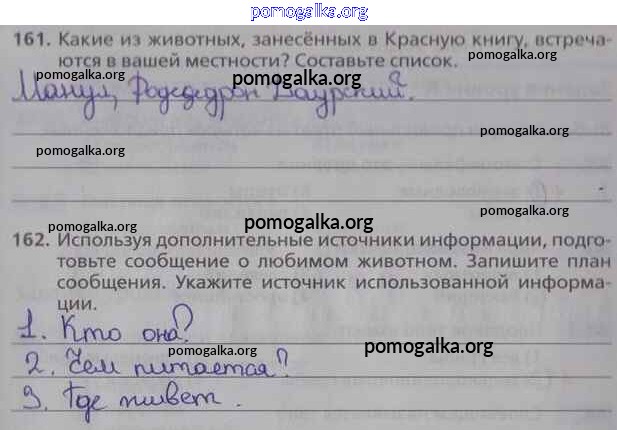 pomogalka.org
161. Какие из животных, занесённых в Красную книгу, встреча-
ются в вашей местности? Составьте список.
pomogalka.org pomogalka.org
Манул, Рододедрон Даурский.
pomogalka.org
pomogalka.org pomogalka.org
pomogalka.org
pomogalka.org pomogalka.org
162. Используя дополнительные источники информации, подго-
товьте сообщение о любимом животном. Запишите план
сообщения. Укажите источник использованной информа-
ции.
1. Кто она?
pomogalka.org pomogalka.org
2. Чем питается?
3. Где живет.
pomogalka.org